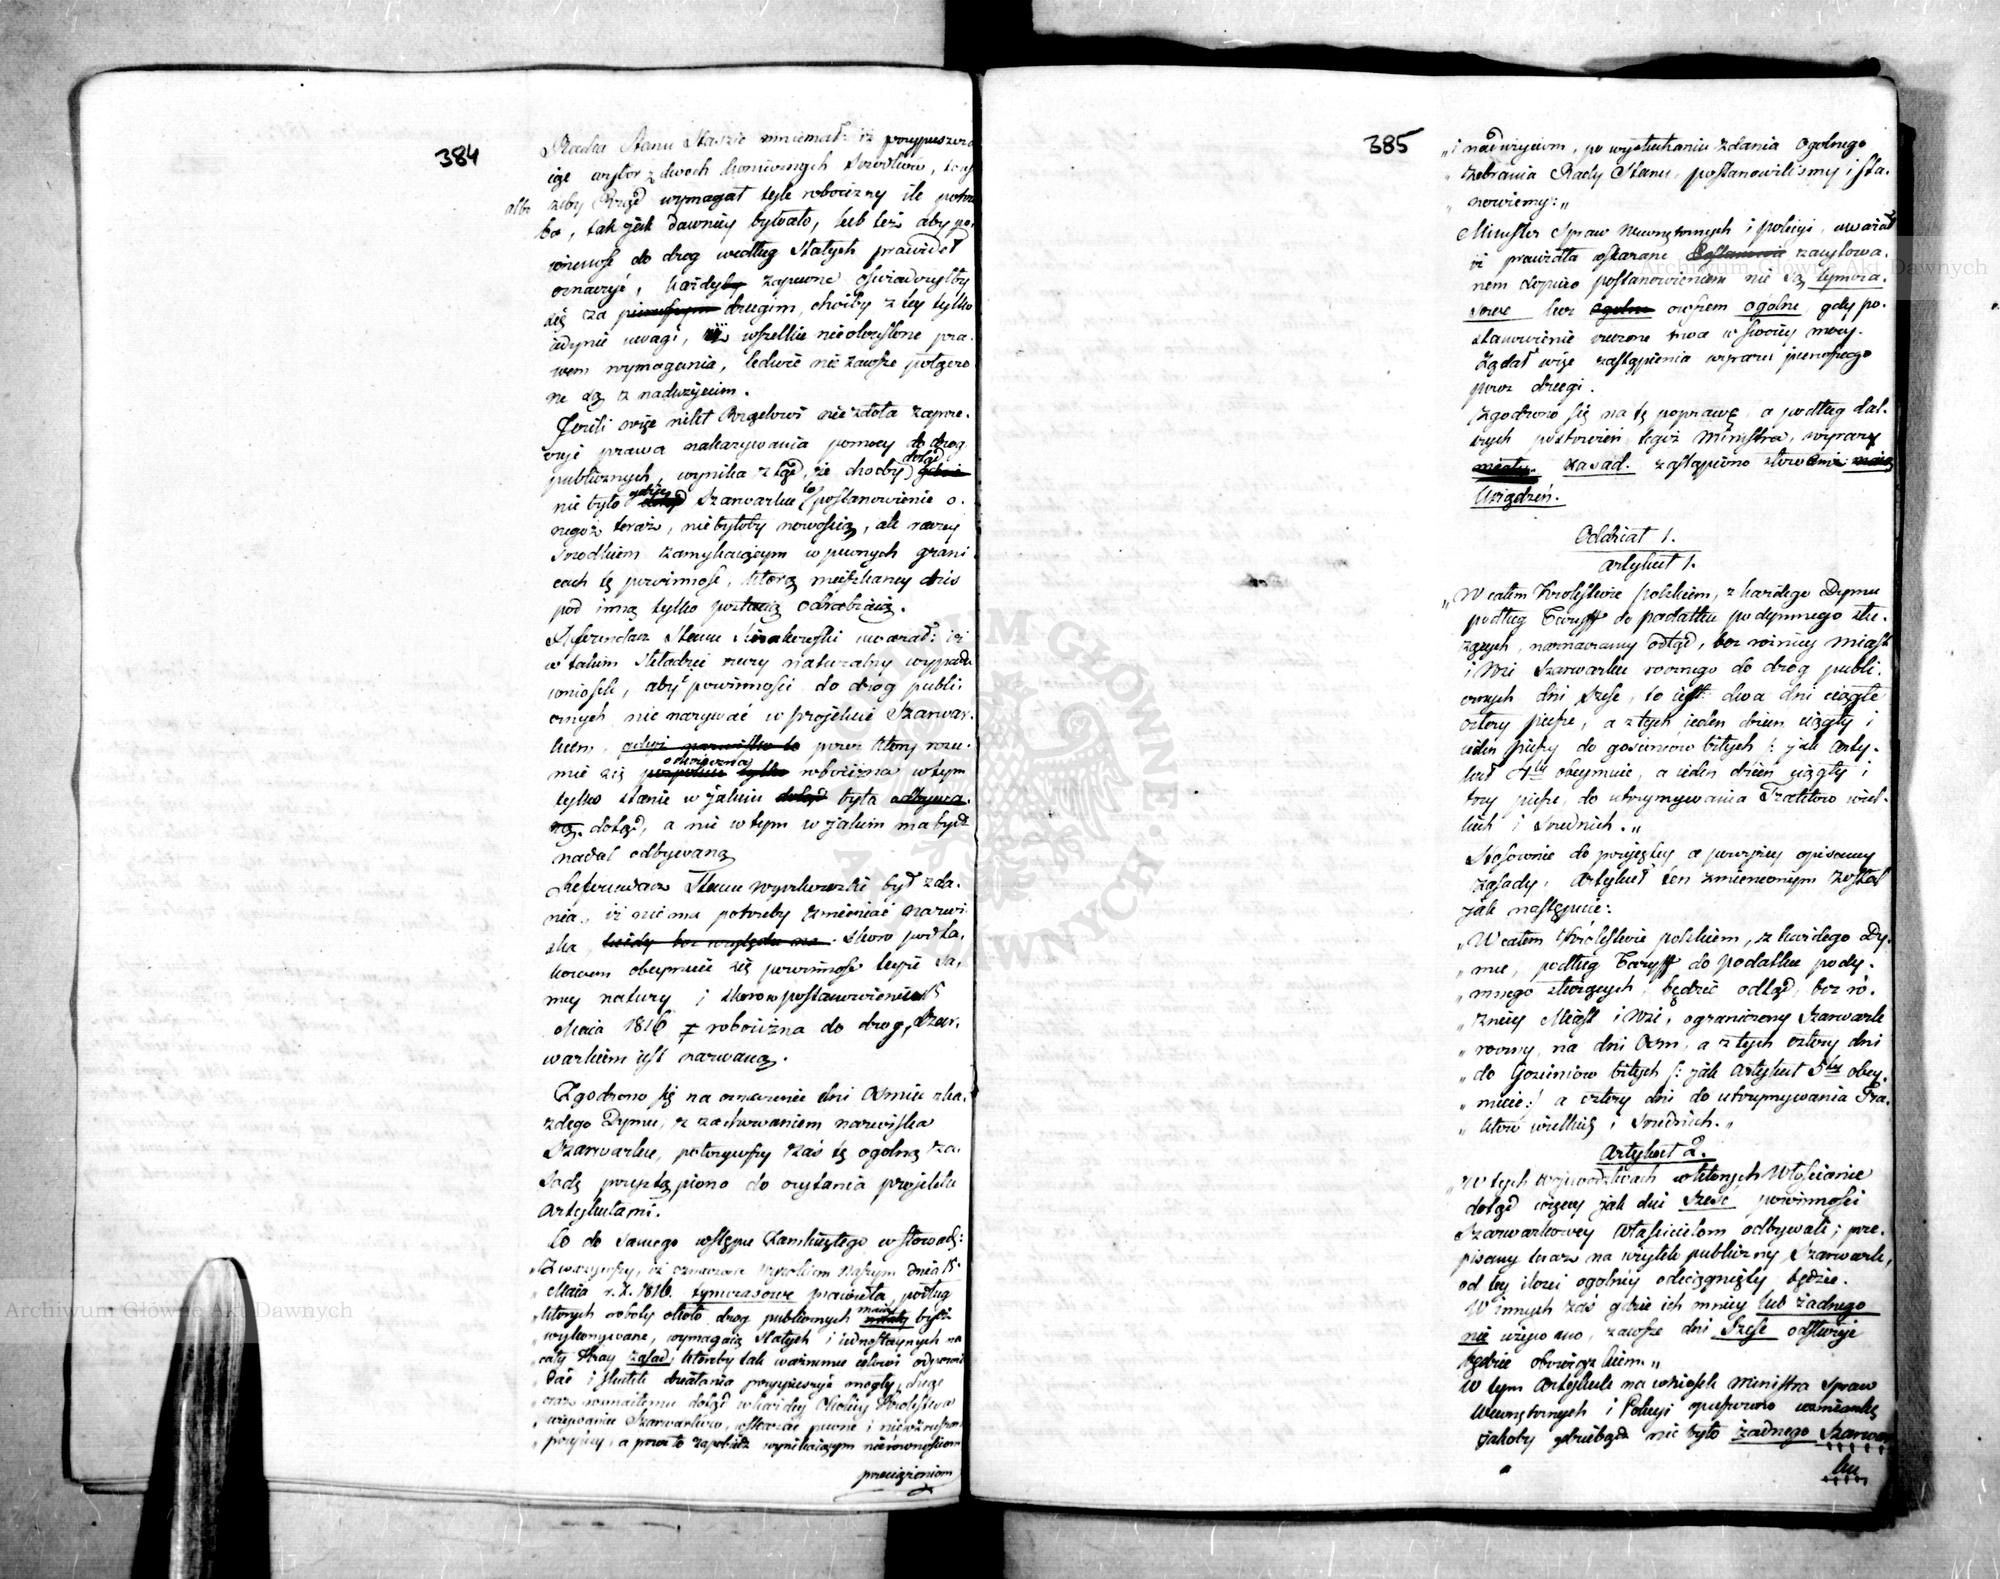 384
Radca Stanu Staszic mniemał: iż przypuszcza
iąc wybór z dwoch koniecznych srzodków, to iest
albo żeby Rząd wymagał tyle robocizny ile potrze
ba, tak jak dawniey bywało, lub też aby po,
winność do drog według stałych prawideł
oznaczyć, każdyby zapewne oświadczyłby
się za pierwszym drugim, choćby z tey tylko
iedynie uwagi, iż wszelkie nieokreślone pra,
wem wymagania, ledwie nie zawsze połączo
ne są z nadużyciem.
Jeżeli więc nikt Rządowi nie zdoła zaprze,
czyć prawa nakazywania pomocy do drog
publicznych, wynika ztąd, że choćby dotąd gdzie
nie było gdzie dotąd Szarwarku to postanowienie o,
negoż teraz, nie byłoby nowością, ale raczey
srodkiem zamykaiącym w pewnych grani,
cach tę powinność, którą mieszkancy dziś
pod inną tylko postacią odrabiaią.
Referendarz Stanu Sierakowski uważał: iż
w takim składzie rzeczy naturalny wypada
wniosek, aby powinności do dróg publi,
cznych nie nazywać w projekcie Szarwar,
kiem, gdyż nazwisko to przez który rozu,
mie się odrobiona tylko robocizna w tym
tylko stanie w jakim dotąd była odbywa,
ną dotąd, a nie w tym w jakim ma bydź
nadal odbywaną
Referendarz Stanu Wyczechowski był zda,
nia, iż nie ma potrzeby zmieniać nazwi
ska każdy bez względu na. skoro pod ta,
kowem obeymuie się powinność teyże sa,
mey natury i skoro w postanowieniu 15
Maia 1816 r. robocizna do drog, Szar,
warkiem iest nazwaną.
Zgodzono się na oznaczenie dni Osmiu z ka,
żdego Dymu, z zachowaniem nazwiska
Szarwarku, położywszy zaś tę ogolną za,
sadę przystąpiono do czytania projektu
Artykułami.
Co do samego wstępu zamkniętego w słowach:
„Zważywszy, iż oznaczone wyrokiem naszym dnia 15.
„ Maia r. z. 1816. tymczasowe prawidła, podług
„ których roboty około drog publicznych maią miały bydź
„ wykonywane, wymagaią stałych i iednostaynych na
„ cały Kray zasad, któreby tak ważnemu celowi odpowie
„ dać i skutek działania przyspieszyć mogły, chcąc
„ oraz rozmaitemu dotąd w każdey okolicy Krolestwa
„ używaniu Szarwarków, wskazać pewne i niewzruszone
„ przepisy, a przez to zapobiedz wynikaiącym nierównościom
przeciążeniom
385
„ i nadużyciom, po wysłuchaniu zdania Ogolnego
„ Zebrania Rady Stanu, postanowilismy i sta,
„ nowiemy:„
Minister Spraw Wewnętrznych i policyi, uważał
iż prawidła wskazane Postanowie zacytowa,
nem dopiéro postanowieniem nie są tymcza,
sowe lecz ogolne owszem ogolne, gdy po,
stanowienie rzeczone trwa w swoiey mocy.
Żądał więc zastąpienia wyrazu pierwszego
przez drugi.
Zgodzono się na tę poprawę, a podług dal,
szych postrzeżeń tegoż Ministra, wyrazy
miały. zasad. zastąpiono słowami maią
Urządzeń.
Oddział 1.
Artykuł 1.
„W całem Krolestwie polskiem, z każdego Dymu
podług Taryff do podatku podymnego słu,
żących, naznaczamy odtąd, bez róznicy miast
i Wsi Szarwarku rocznego do drog publi,
cznych dni szesć, to iest: dwa dni ciągłe
cztery piesze, a z tych ieden dzien ciągły i
ieden pieszy do gosćincow bitych /: jak Arty,
kuł 4ty obeymuie, a ieden dzień ciągły i
trzy piesze, do utrzymywania Traktow wiel,
kich i srzednich.„
Stosownie do przyiętey a powyżey opisaney
zasady, Artykuł ten zmienionym został
jak następuie:
„W całem Krolestwie polskiem, z każdego Dy,
„ mu, podług Taryff do podatku pody,
„ mnego służących, będzie odtąd, bez ró,
„ żnicy Miast i Wsi, ograniczony Szarwark
„ roczny, na dni Osm, a z tych cztery dni
„ do Gosćincow bitych /: jak Artykuł 5ty obey,
„ muie:/ a cztery dni do utrzymywania Tra,
„ ktow wielkich i srzednich.„
Artykuł 2.
„W tych Wojewodztwach w ktorych Włościanie
dotąd więcey jak dni szesć powinności
Szarwarkowey Właścicielom odbywali; prze,
pisany teraz na użytek publiczny Szarwark,
od tey ilości ogolney odciągnięty będzie.
W innych zaś gdzie ich mniey lub żadnego
nie używano, zawsze dni Szesć odsłużyć
będzie obowiązkiem.„
W tym Artykule na wniosek Ministra Spraw
Wewnętrznych i Policyi opuszczono wzmiankę
jakoby gdziebądź nie było żadnego Szarwar
ku